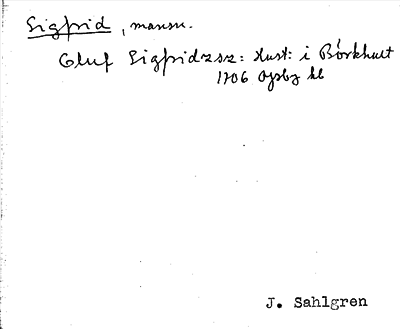 Sigfrid, mansn.
Oluf Sigfridzsz: Hust: i Börkhult
1706 Opsby kb
J. Sahlgren